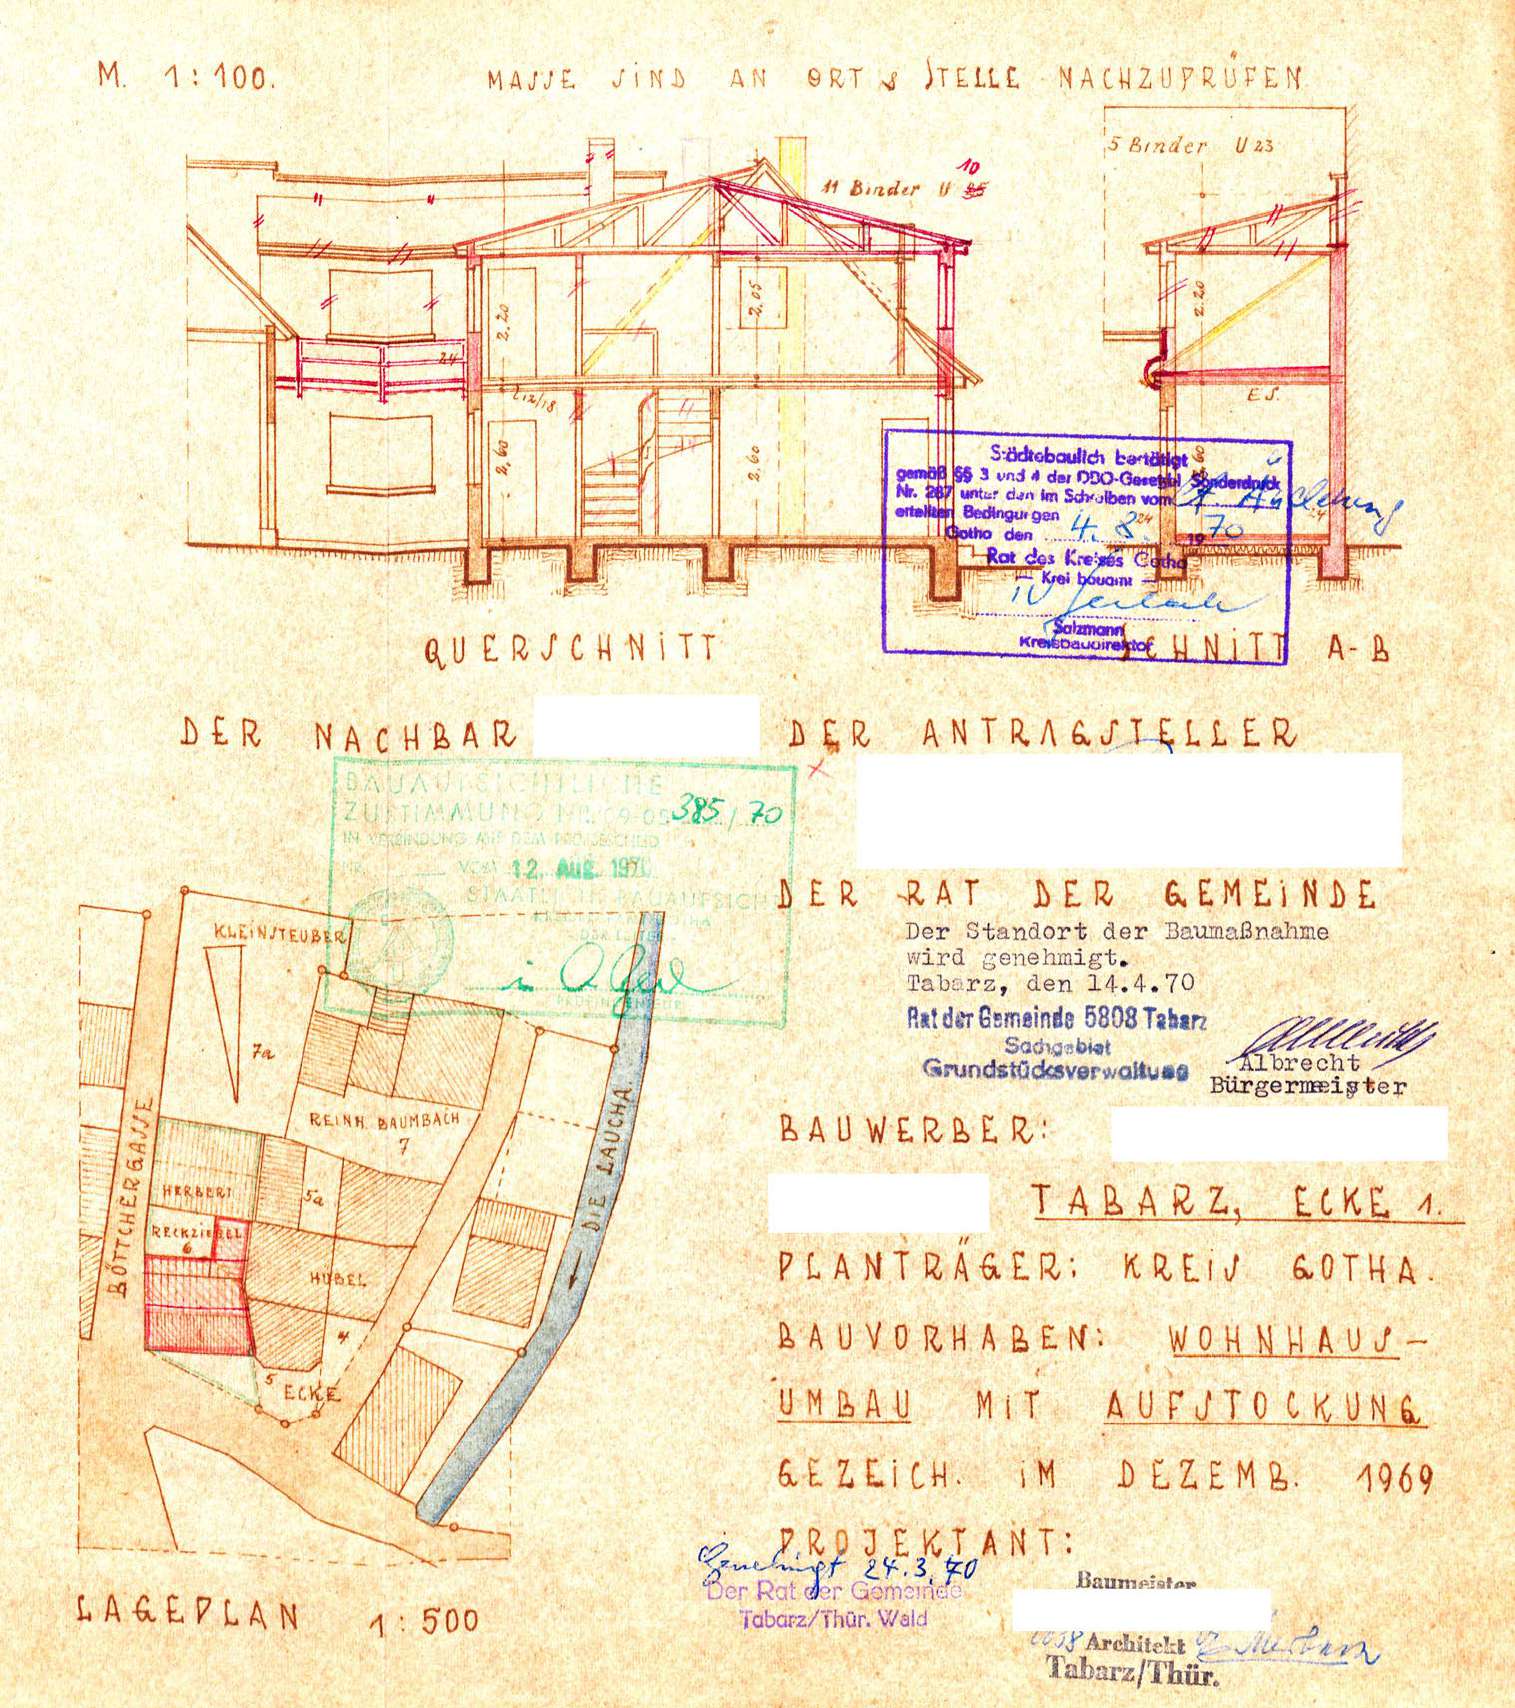 M. 1:100.
MASSE SIND AN ORT & STELLE NACHZUPRÜFEN
5 Binder U 23
10
11 Binder U 25
2.20
2.05
2.20
24
E S.
12/18
2,60
2.60
Städtebaulich bestätigt
gemäß §§ 3 und 4 der DBO-Gesetzbl. Sonderdruck
Nr. 287 unter den im Schreiben vom
erteilten Bedingungen
Gotha den 4. 8. 1970
24
Rat des Kreises Gotha
— Kreisbauamt —
Salzmann
Kreisbaudirektor
QUERSCHNITT
SCHNITT A-B
DER NACHBAR
DER ANTRAGSTELLER
BAUAUFSICHTLICHE
ZUSTIMMUNG NR. 09-05 385/70
IN VERBINDUNG MIT DEM PRÜFBESCHEID
NR. VOM 12. Aug. 1970
STAATLICHE BAUAUFSICHT
PRÜFINGENIEUR
DER RAT DER GEMEINDE
Der Standort der Baumaßnahme
wird genehmigt.
Tabarz, den 14.4.70
Rat der Gemeinde 5808 Tabarz
Sachgebiet
Grundstücksverwaltung
Albrecht
Bürgermeister
KLEINSTEUBER
7a
REINH. BAUMBACH
7
BÖTTCHERGASSE
DIE LAUCHA
HERBERT
5a
RECKZIEGEL
6
HUBEL
4
5
ECKE
BAUWERBER:
TABARZ, ECKE 1.
PLANTRÄGER: KREIS GOTHA.
BAUVORHABEN: WOHNHAUS-
UMBAU MIT AUFSTOCKUNG
GEZEICH. IM DEZEMB. 1969
PROJEKTANT:
Genehmigt 24.3.70
Der Rat der Gemeinde
Tabarz/Thür. Wald
Baumeister
Architekt
Tabarz/Thür.
LAGEPLAN 1:500